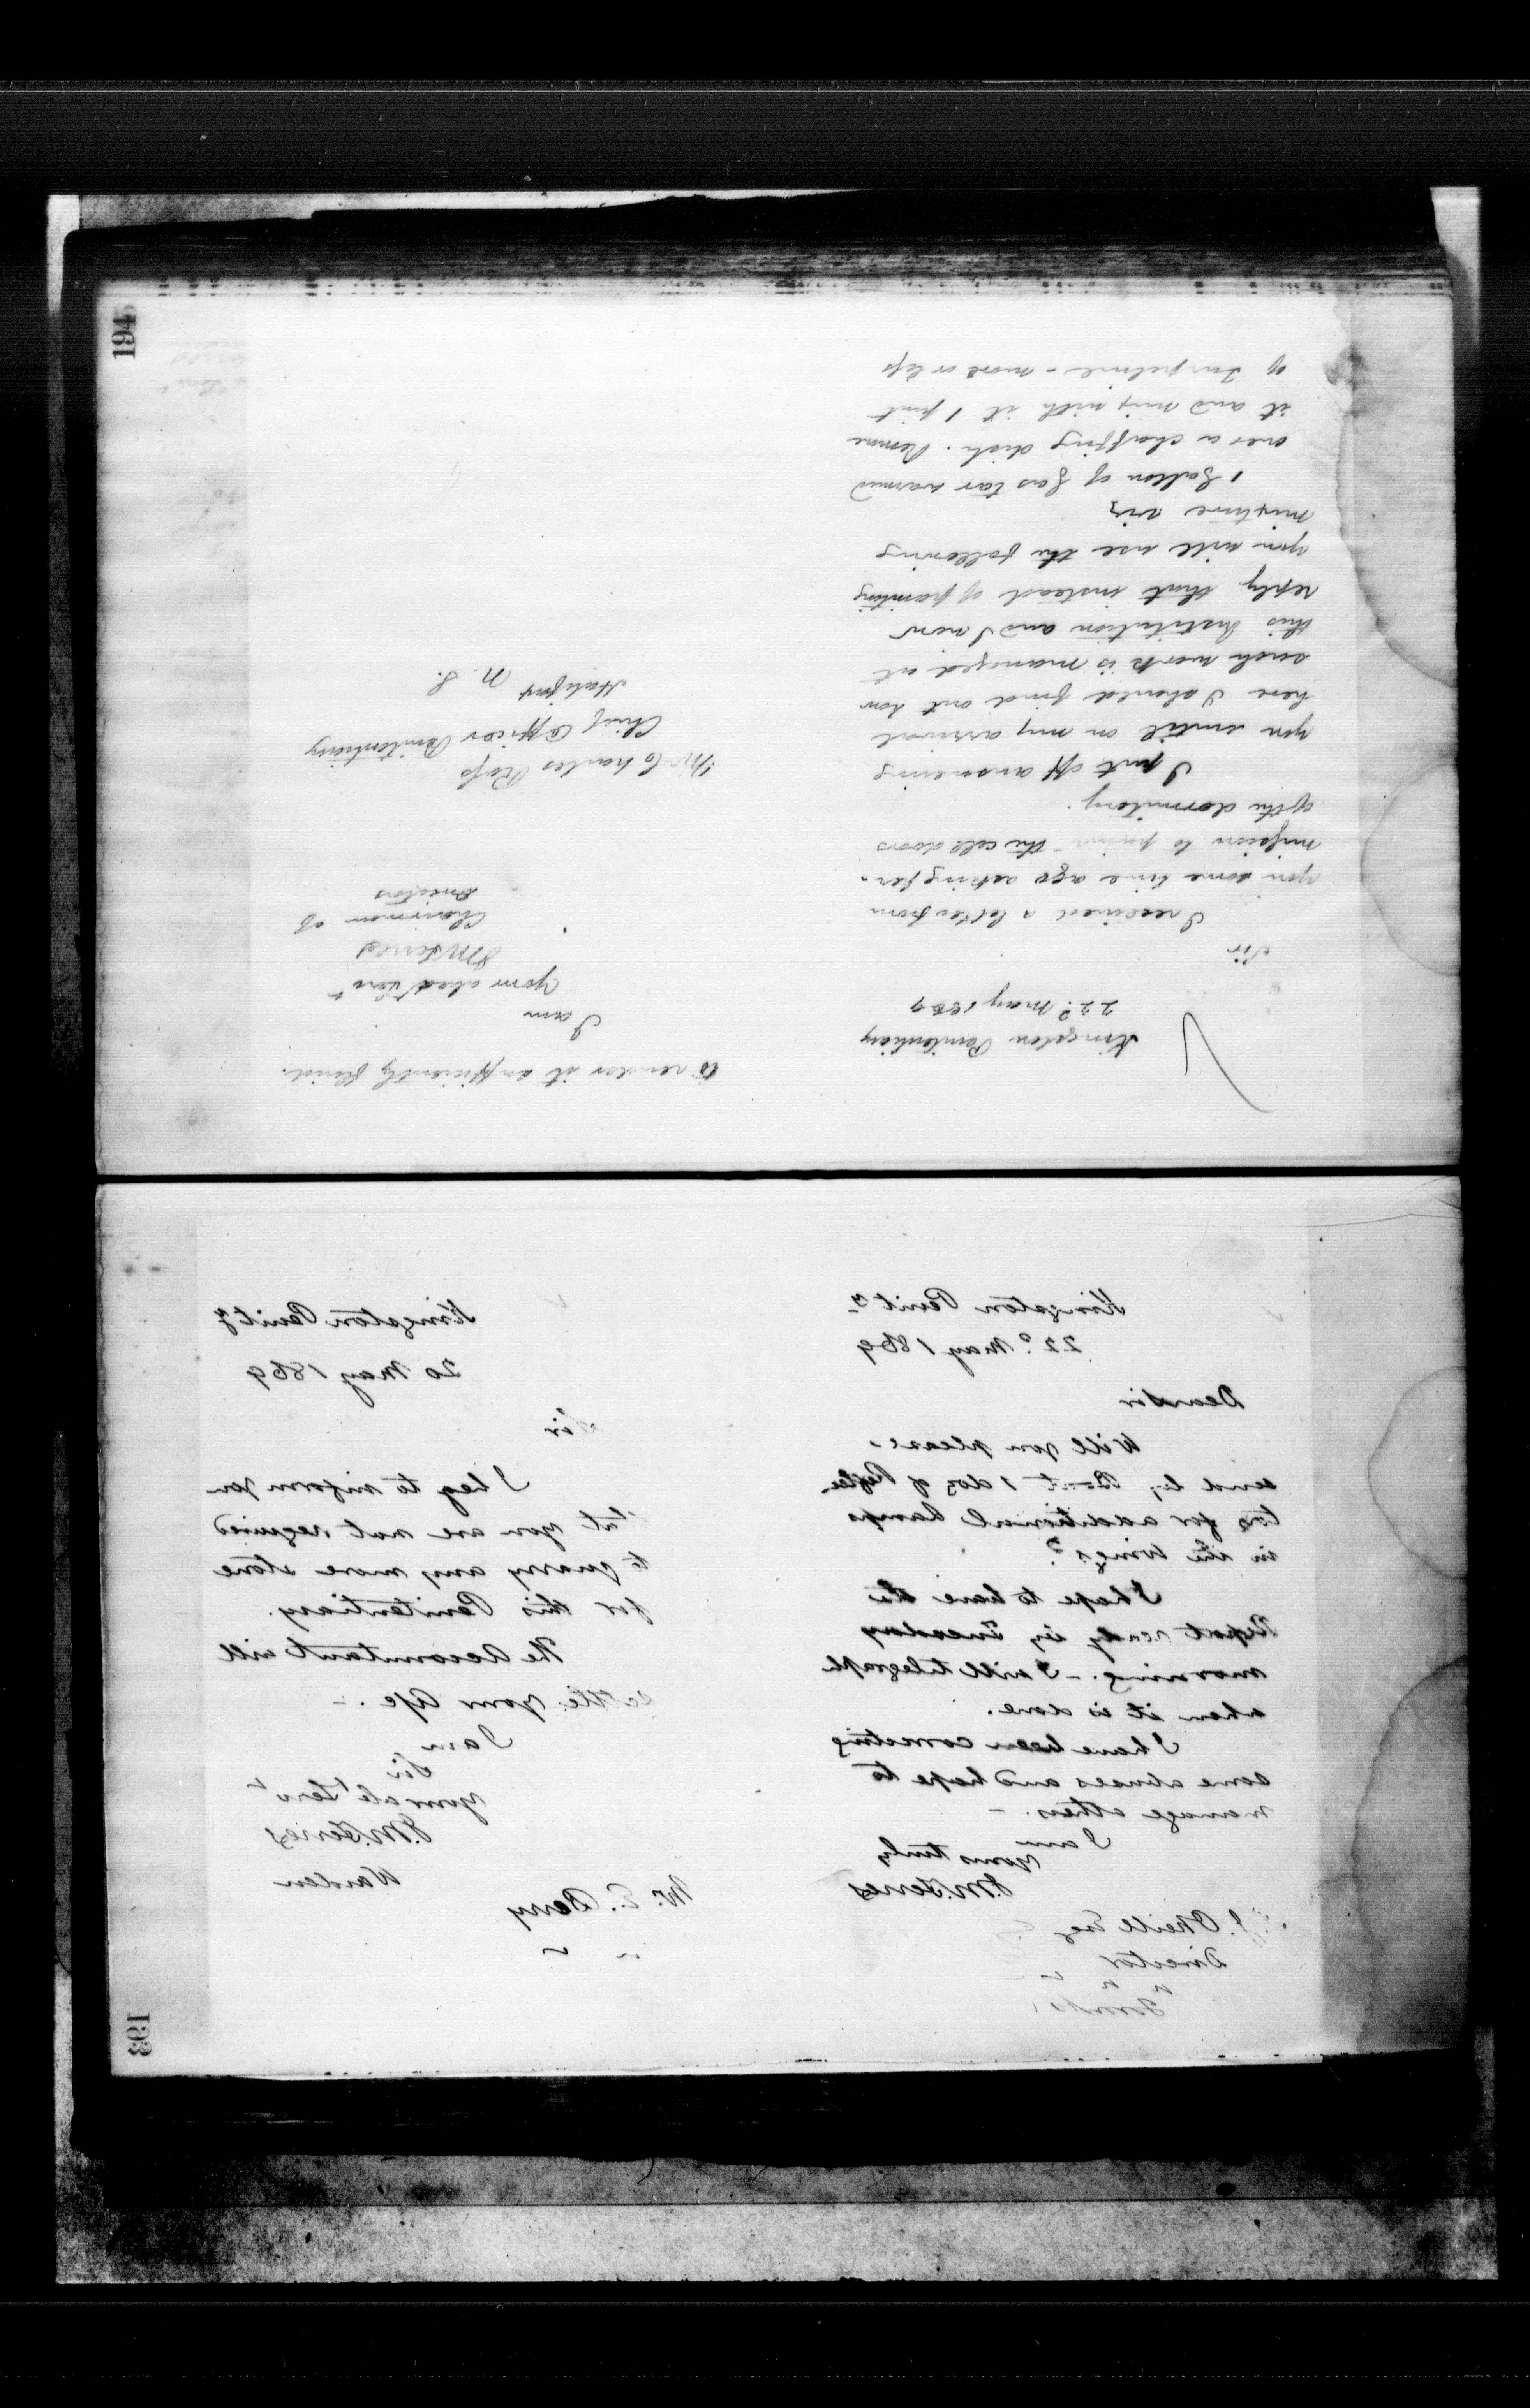 194
Kingston Penitentiary
22d May 1869
Sir
I received a letter from
you some time ago asking per-
mission to paint the cell doors
of the dormitory.
I put off answering
you until on my arrival
here I should find out how
such work is managed at
this Institution and I now
reply that instead of painting
you will use the following
mixture viz
1 Gallon of Gas tar warmed
over a chaffing dish. Remove
it and mix with it 1 pint
of Turpentine - more or less
to render it sufficiently fluid.
I am
your obed Servt
J M Ferres
Chairman of
Directors
Mr Charles Ross
Chief Officer Penitentiary
Halifax N. S.
Kingston Penity
22d May 1869
Dear Sir
Will you please
send by 1 doz of Reflec
tors for additional Lamps
in the Wings?
I hope to have the
Report ready by Tuesday
morning. - I will telegraph
when it is done.
I have been correcting
some abuses and hope to
manage others. -
I am
yours truly
J. M. Ferres
J. O'Neill Esq
Director
" "
Toronto
Kingston Penity
20 May 1869
Sir
I beg to inform you
that you are not required
to quarry any more stone
for this Penitentiary.
The Accountant will
settle your a/c. -
I am
Sir
your obt Servt
J. M. Ferres
Warden
Mr. E. Berry
" "
193